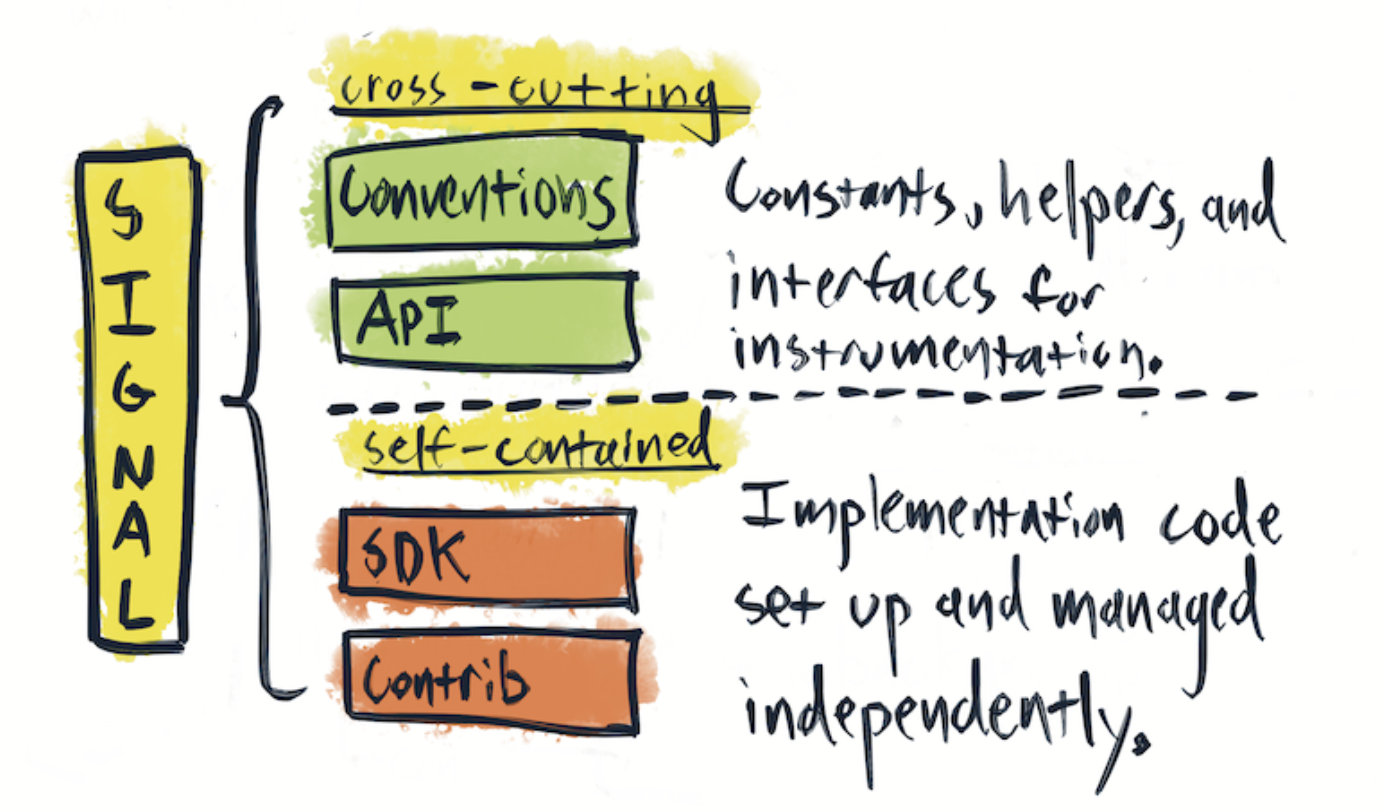 SIGNAL
cross-cutting
Conventions
API
Constants, helpers, and
interfaces for
instrumentation.
self-contained
SDK
Contrib
Implementation code
set up and managed
independently.